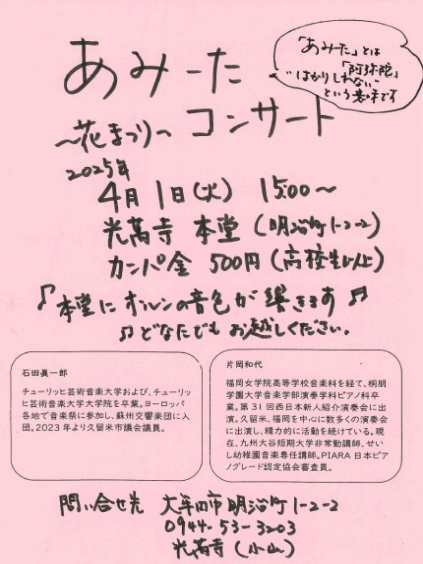 あみーた
コンサート
「あみーた」とは
「阿弥陀」
"はかりしれない"
という意味です
〜花まつり〜
2025年
4月1日(火) 15:00〜
光萬寺 本堂(明治町1-2-2)
カンパ金 500円(高校生以上)
♪本堂にオルガンの音色が響きます♬
♫どなたでもお越しください。
石田眞一郎
チューリッヒ芸術音楽大学および、チューリッ
ヒ芸術音楽大学大学院を卒業。ヨーロッパ
各地で音楽祭に参加し、蘇州交響楽団に入
団。2023年より久留米市議会議員。
片岡和代
福岡女学院高等学校音楽科を経て、桐朋
学園大学音楽学部演奏学科ピアノ科卒
業。第31回西日本新人紹介演奏会に出
演。久留米、福岡を中心に数多くの演奏会
に出演し、精力的に活動を続けている。現
在、九州大谷短期大学非常勤講師、せい
し幼稚園音楽専任講師。PIARA日本ピア
ノグレード認定協会審査員。
問い合せ先 大牟田市明治町1-2-2
0944-53-3203
光萬寺(小山)